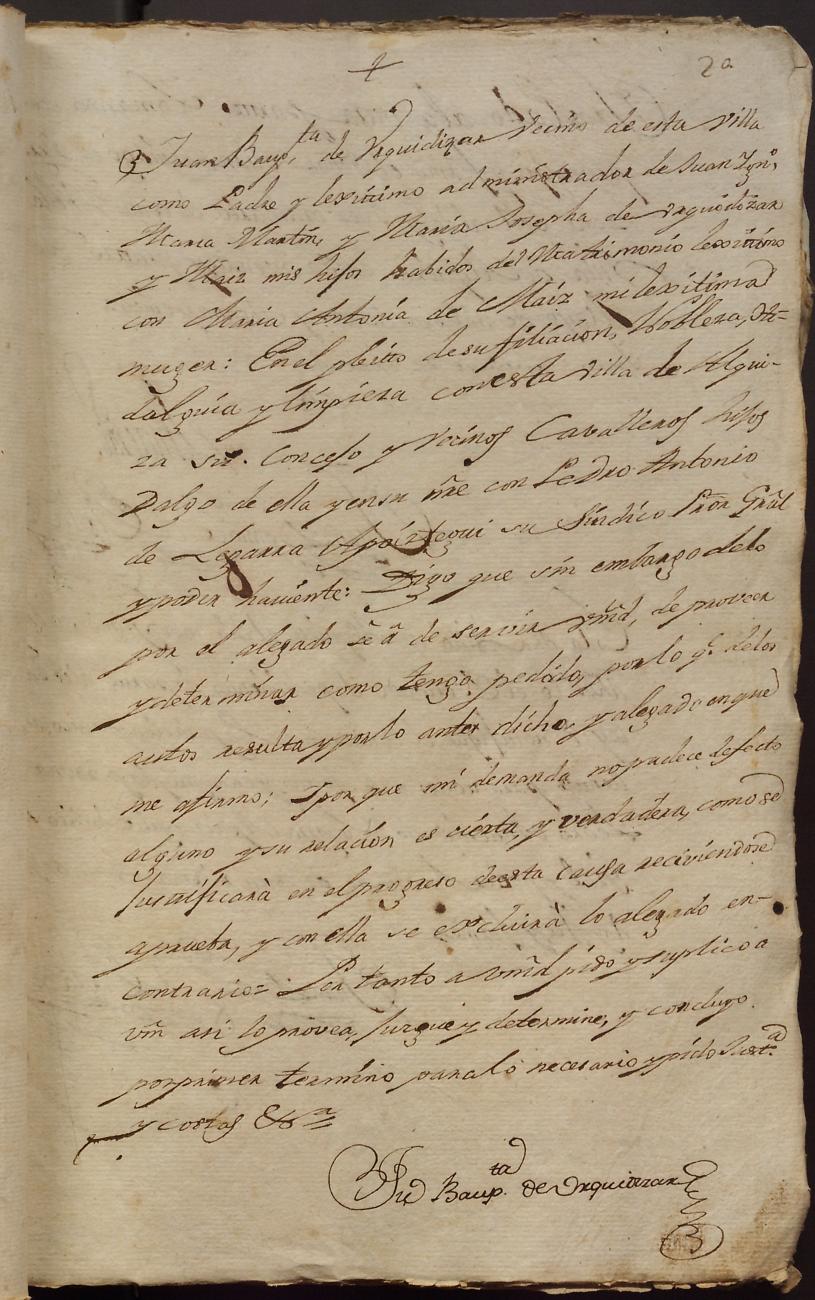 20
Juan Baup.ta de Vrquidizar vecino de esta villa
como Padre y lexitimo administrador de Juan Ign.o
Maria Martin, y Maria Josepha de vrquidizar
y Maiz mis hijos habidos del Matrimonio lexitimo
con Maria Antonia de Maiz mi lexitima
muger: En el pleito de su filiacion, Nobleza, Hi=
dalguia y limpieza con esta villa de Algui-
za su Concejo y vecinos Cavalleros hijos
Dalgo de ella y en su nre con Pedro Antonio
de Leparra Apoiztegui su Sindico Pror Gral
y poder haviente: Digo que sin embargo de lo
por el alegado se â de servir vmd, de proveer
y determinar como tengo pedido, por lo q.e de los
autos resulta y por lo antes dicho, y alegado en que
me afirmo; Y por que mi demanda no padece defecto
alguno y su relacion es cierta, y verdadera, como se
Justificarà en el progreso de esta causa reciviendose
a prueba, y con ella se excluirà lo alegado en-
contrario= Por tanto a vmd pido y suplico a
vm asi lo provea, Juzgue y determine, y concluyo
por primer termino para lo necesario y pido Just.a
y costas &.a
Ju Baup.ta de Vrquidizar